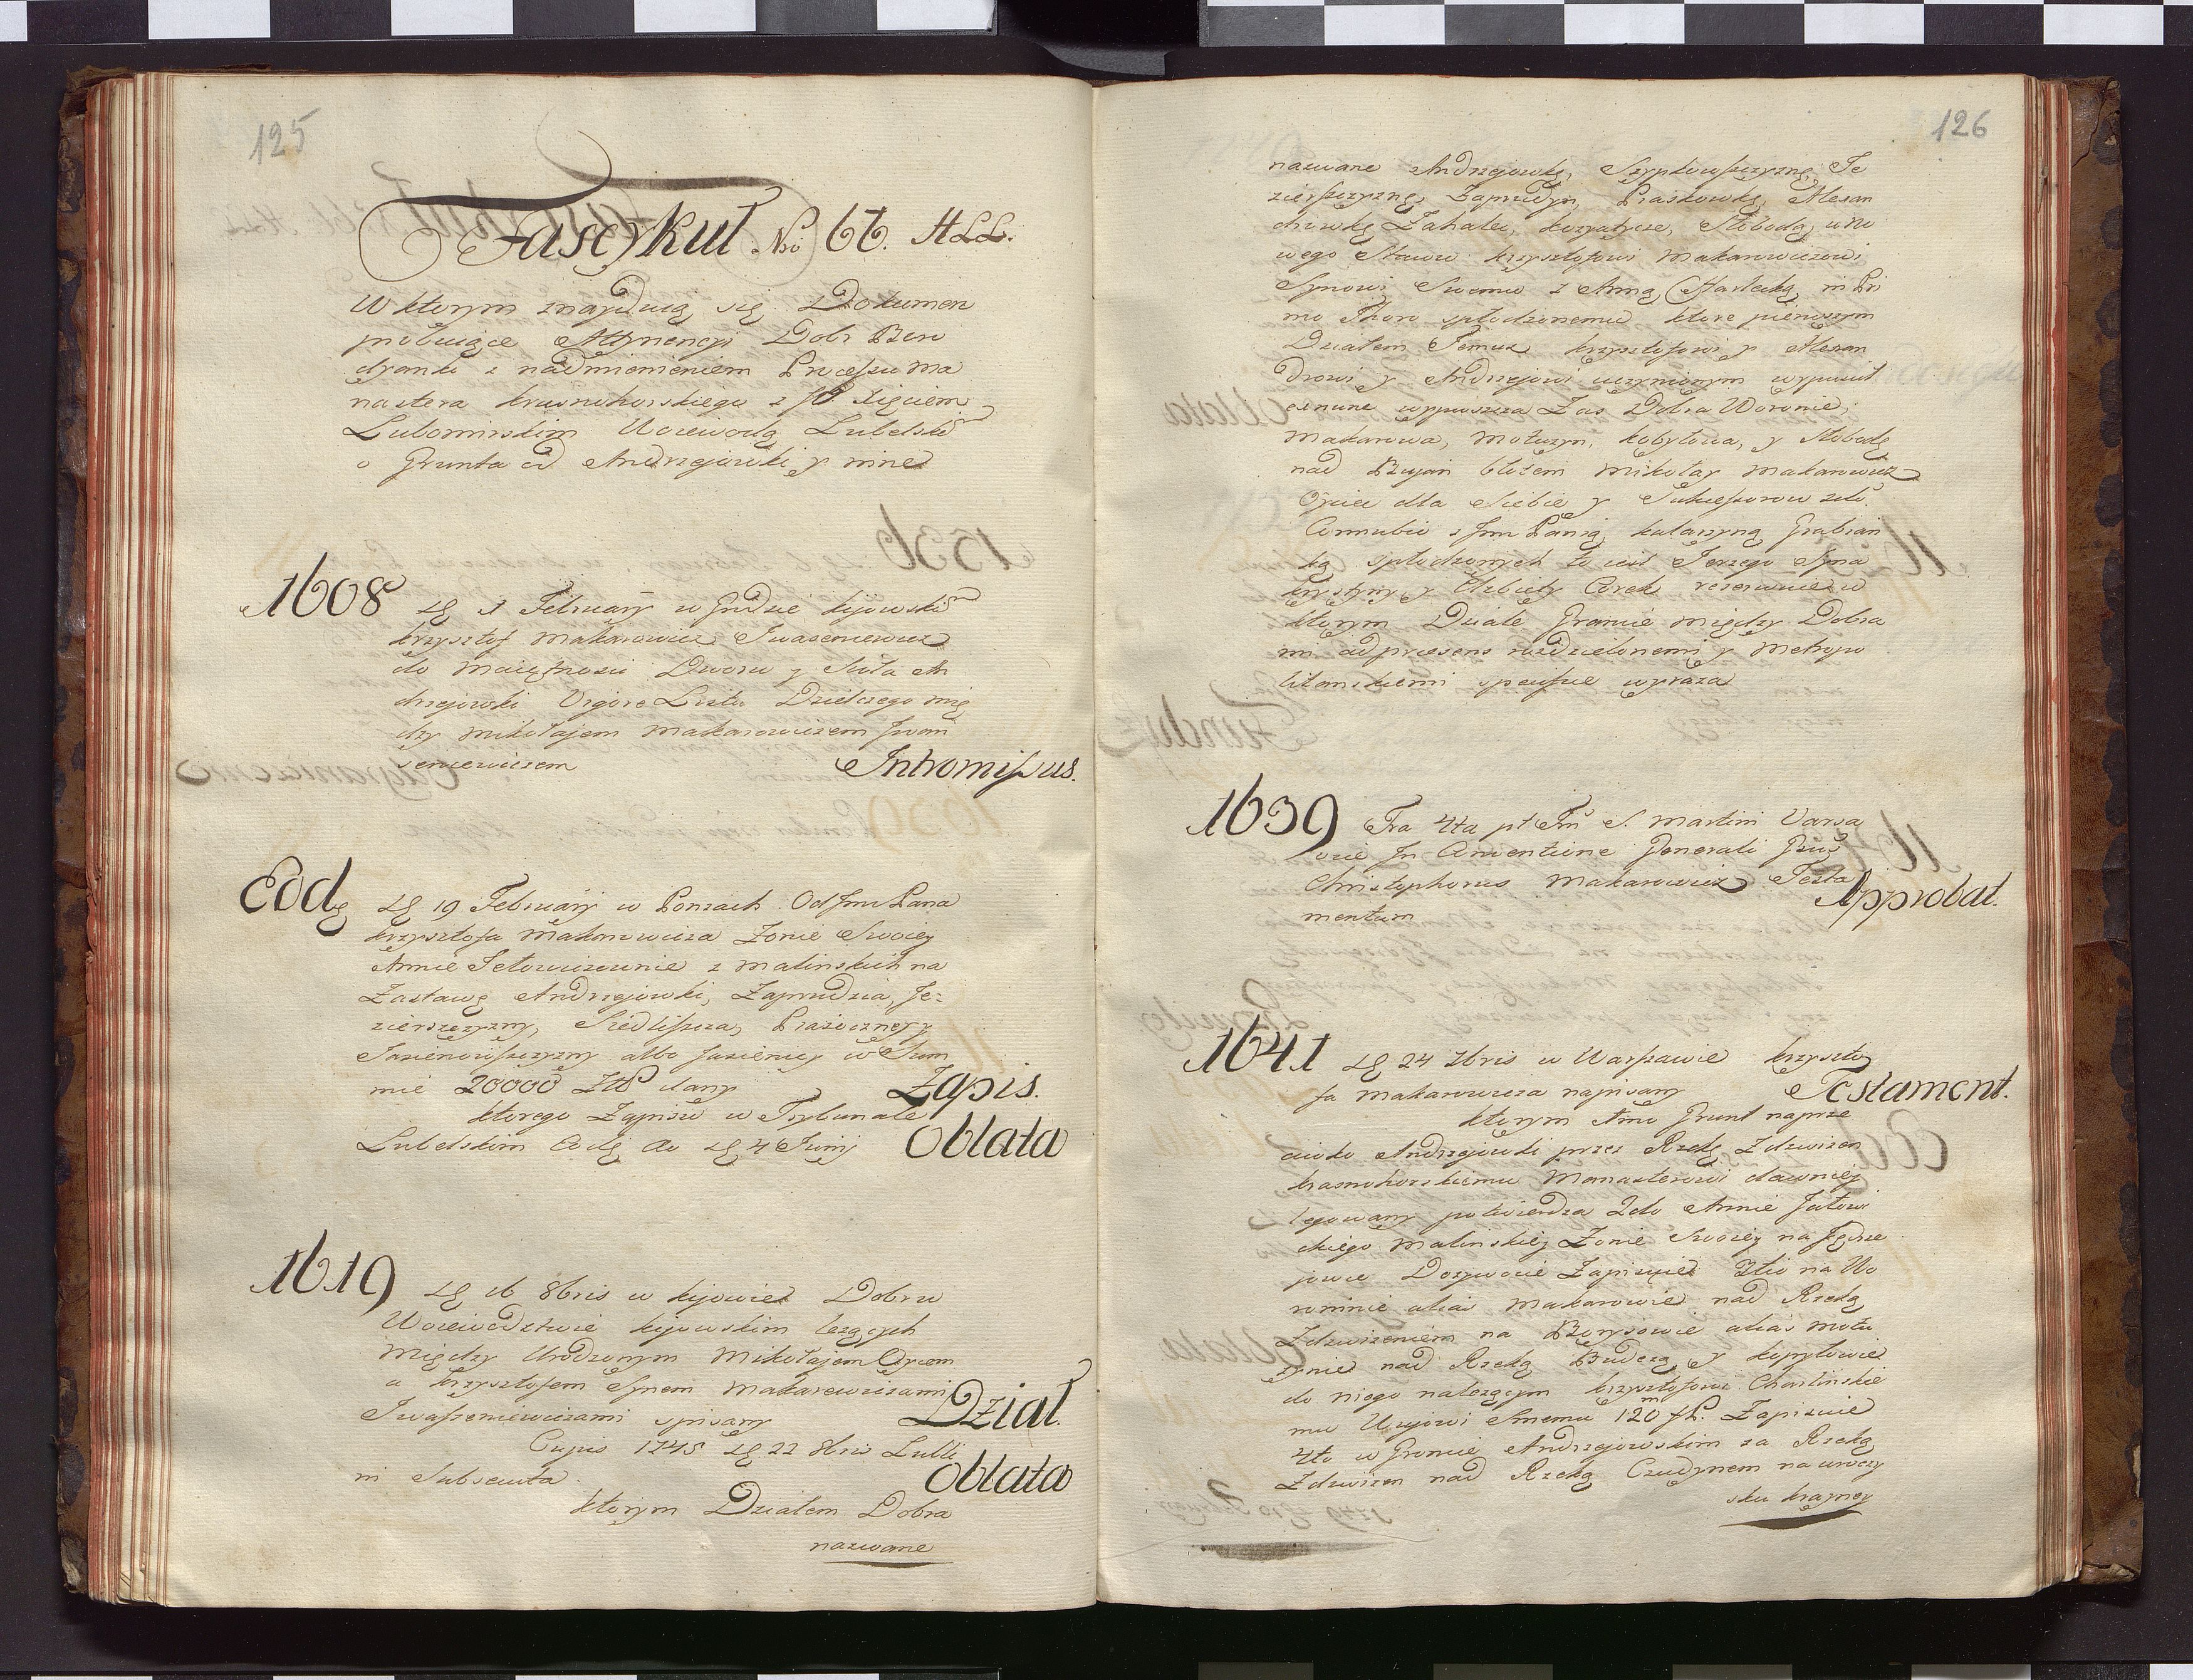 125
Fascykuł No 66. ALL.
W ktorym znayduią się Dokumen
probuiące Attynencyi Dobr Boro
dyanki z nadmienieniem Processu Ma
nastera krasnohorskiego z JO Xięciem
Lubomirskim Woiewodą Lubelski
o Grunta od Andrzejowki y inne
1608 dg 1 February w Grodzie kijowski
krzysztof Makarowicz Iwaseniewicz
do Maiętnosci Dworu y Sioła An
drzejowki Vigore Listu Dzielczego mię
dzy Mikołajem Makarowiczem Iwan
seniewiczem Intromissus.
Eodg dg 19 February w Lonzach Od Jmu Pana
krzysztofa Makarowicza Zonie Swoiey
Annie Jełowizownie z Malinskich na
Zastawę Andrzejowki, Zaprudzia, Je=
zierszczyzny, Siedliszcza, Piasoczney y
Jasienowszczyzny albo Jasieniey w Sum
mie 20000 Złł dany Zapis.
ktorego Zapisu w Trybunale
Lubelskim Eodg Ao dg 4 Junij Oblata
1619 dg 16 8bris w kijowie Dobr w
Woiewodztwie kijowskim lezących
między Urodzonym Mikołajem Oycem
a krzysztofem Synem Makarewiczami
Iwaszeniewiczami spisany Dział.
Cujus 1745 dg 22 8bris Lubli
ni Subsecuta Oblata
ktorym Działem Dobra
nazwane
126
nazwane Andrzejowkę, Szypłowszczyznę, Je
zierszczyznę, Zaprudzyn, Piaskowkę, Alexan
drowkę Zahalce, kozyatycze, Słobodę, u No
wego Stawu krzysztofowi Makarowiczowi
Synowi Swemu z Anną Harlecką in Pri
mo Thoro spłodzonemu ktore pierwszym
Działem Temuz krzysztofowi y Alexan
drowi y Andrzejowi uczynionym wypuscił
etnunc wypuszcza Zas Dobra Woronie,
Makarowa, Motuzyn, kobyłowa, y Słobodę
nad Buyan błotem Mikołay Makarowicz
Oyciec dla Siebie y Sukcessorow 2do
Connubio z Jmu Panią katarzyną Grabian
ką spłodzonych to iest Jerzego Syna
krystyny y Elzbiety Corek rezerwuie w
ktorym Dziale Granice między Dobra
mi ad praesens rozdzielonemi y Metropo
litanskiemi specifice wyraza
1639 Fra 4ta pt Fm S. Martini Varsa
viae In Conventione Generali Gnus
Christophorus Makarowicz Testa
mentum Approbat.
1641 dg 24 7bris w Warszawie krzyszto
fa Makarowicza napisany Testament.
ktorym Amo Grunt naprze
ciwko Andrzejowki przez Rzekę Zdwizen
krasnohorskiemu Monasterowi dawniej
legowany potwierdza 2do Annie Jałowi
ckiego Malinskiej Zonie Swoiey na Jędrze
jowie Dozywocie Zapisuie 3tio na Wo
roninie alias Makarowie nad Rzeką
Zdwizeniem na Borysowie alias Motu
zynie nad Rzeką Budezą y kopyłowie
do niego nalezącym krzysztofowi Charlinskie
mu Wujowi Smemu 120 m fl. Zapisuie
4to w Groncie Andrzejowskim za Rzeką
Zdwizen nad Rzeką Czudynem na uroczy
sku krayney